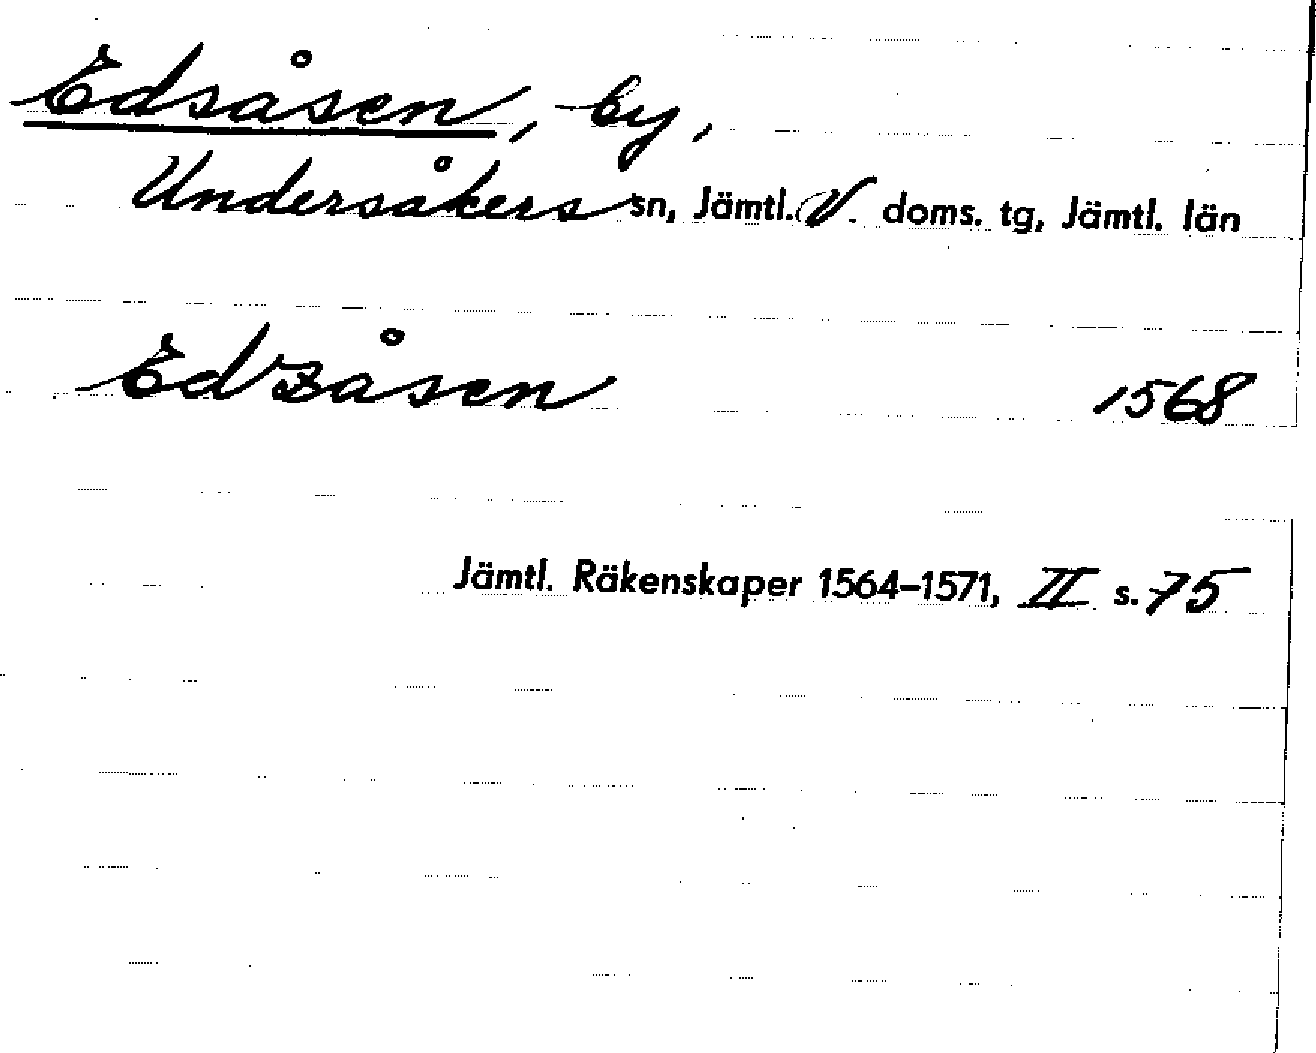 Edsåsen, by,
Undersåkers sn, Jämtl. V. doms. tg, Jämtl. län
Edzåsen 1568
Jämtl. Räkenskaper 1564–1571, II s. 75